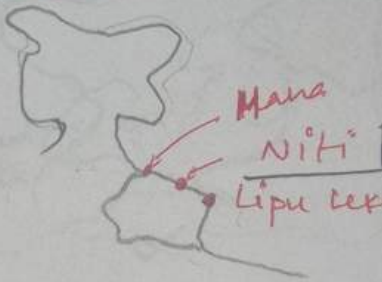 Mana
Niti
Lipu Lek